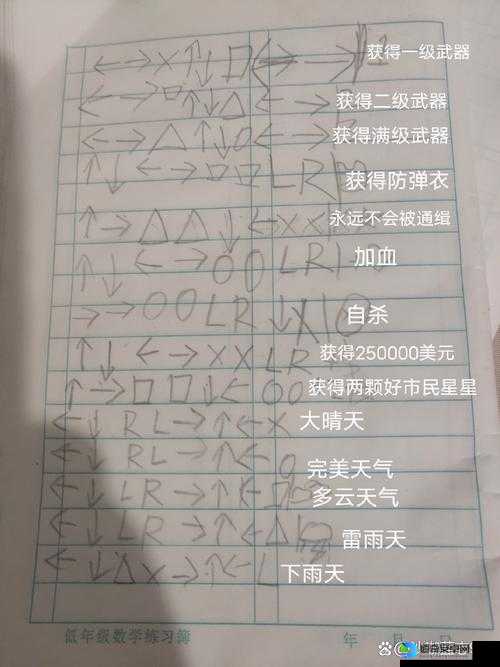 ← → × ↑ ↓ □ ← → 获得一级武器
← → □ ↑ ↓ △ ← → 获得二级武器
← → △ ↑ ↓ O ← → 获得满级武器
↑ ↓ ← → □ □ L R 获得防弹衣
↑ → △ △ ↓ ← × × 永远不会被通缉
↑ ↓ ← → O O L R 加血
→ → O O L R ↓ X 自杀
↑ ↓ ← → × × L R 获得250000美元
↑ → □ □ ↓ ← O O 获得两颗好市民星星
← ↓ R L → ↑ ← × 大晴天
← ↓ R L → ↑ ← O 完美天气
← ↓ L R → ↑ ← □ 多云天气
← ↓ L R → ↑ ← △ 雷雨天
← ↓ △ × → ↑ ← L 下雨天
低年级数学练习簿 年 月 日